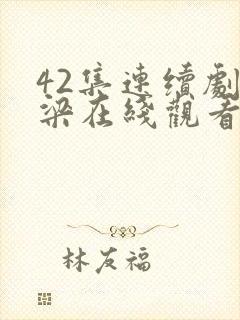 42集連續劇
梁在綫觀看
林友福